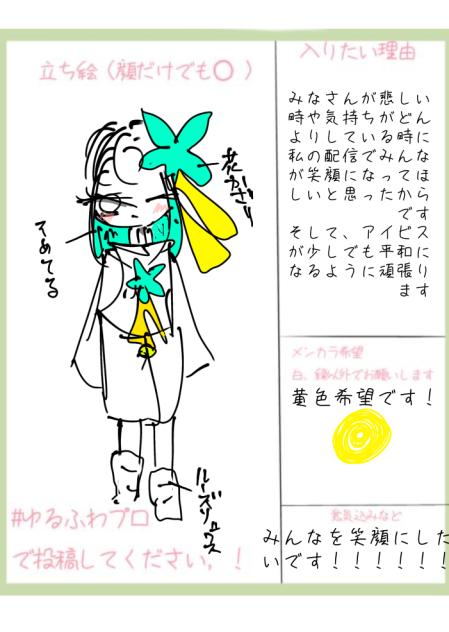 立ち絵（顔だけでも〇）
花かざり
そめてる
ルーズソックス
#ゆるふわプロ
で投稿してください，！
入りたい理由
みなさんが悲しい
時や気持ちがどん
よりしている時に
私の配信でみんな
が笑顔になってほ
しいと思ったから
です
そして、アイビス
が少しでも平和に
なるように頑張り
ます
メンカラ希望
白、緑以外でお願いします
黄色希望です！
意気込みなど
みんなを笑顔にした
いです！！！！！！